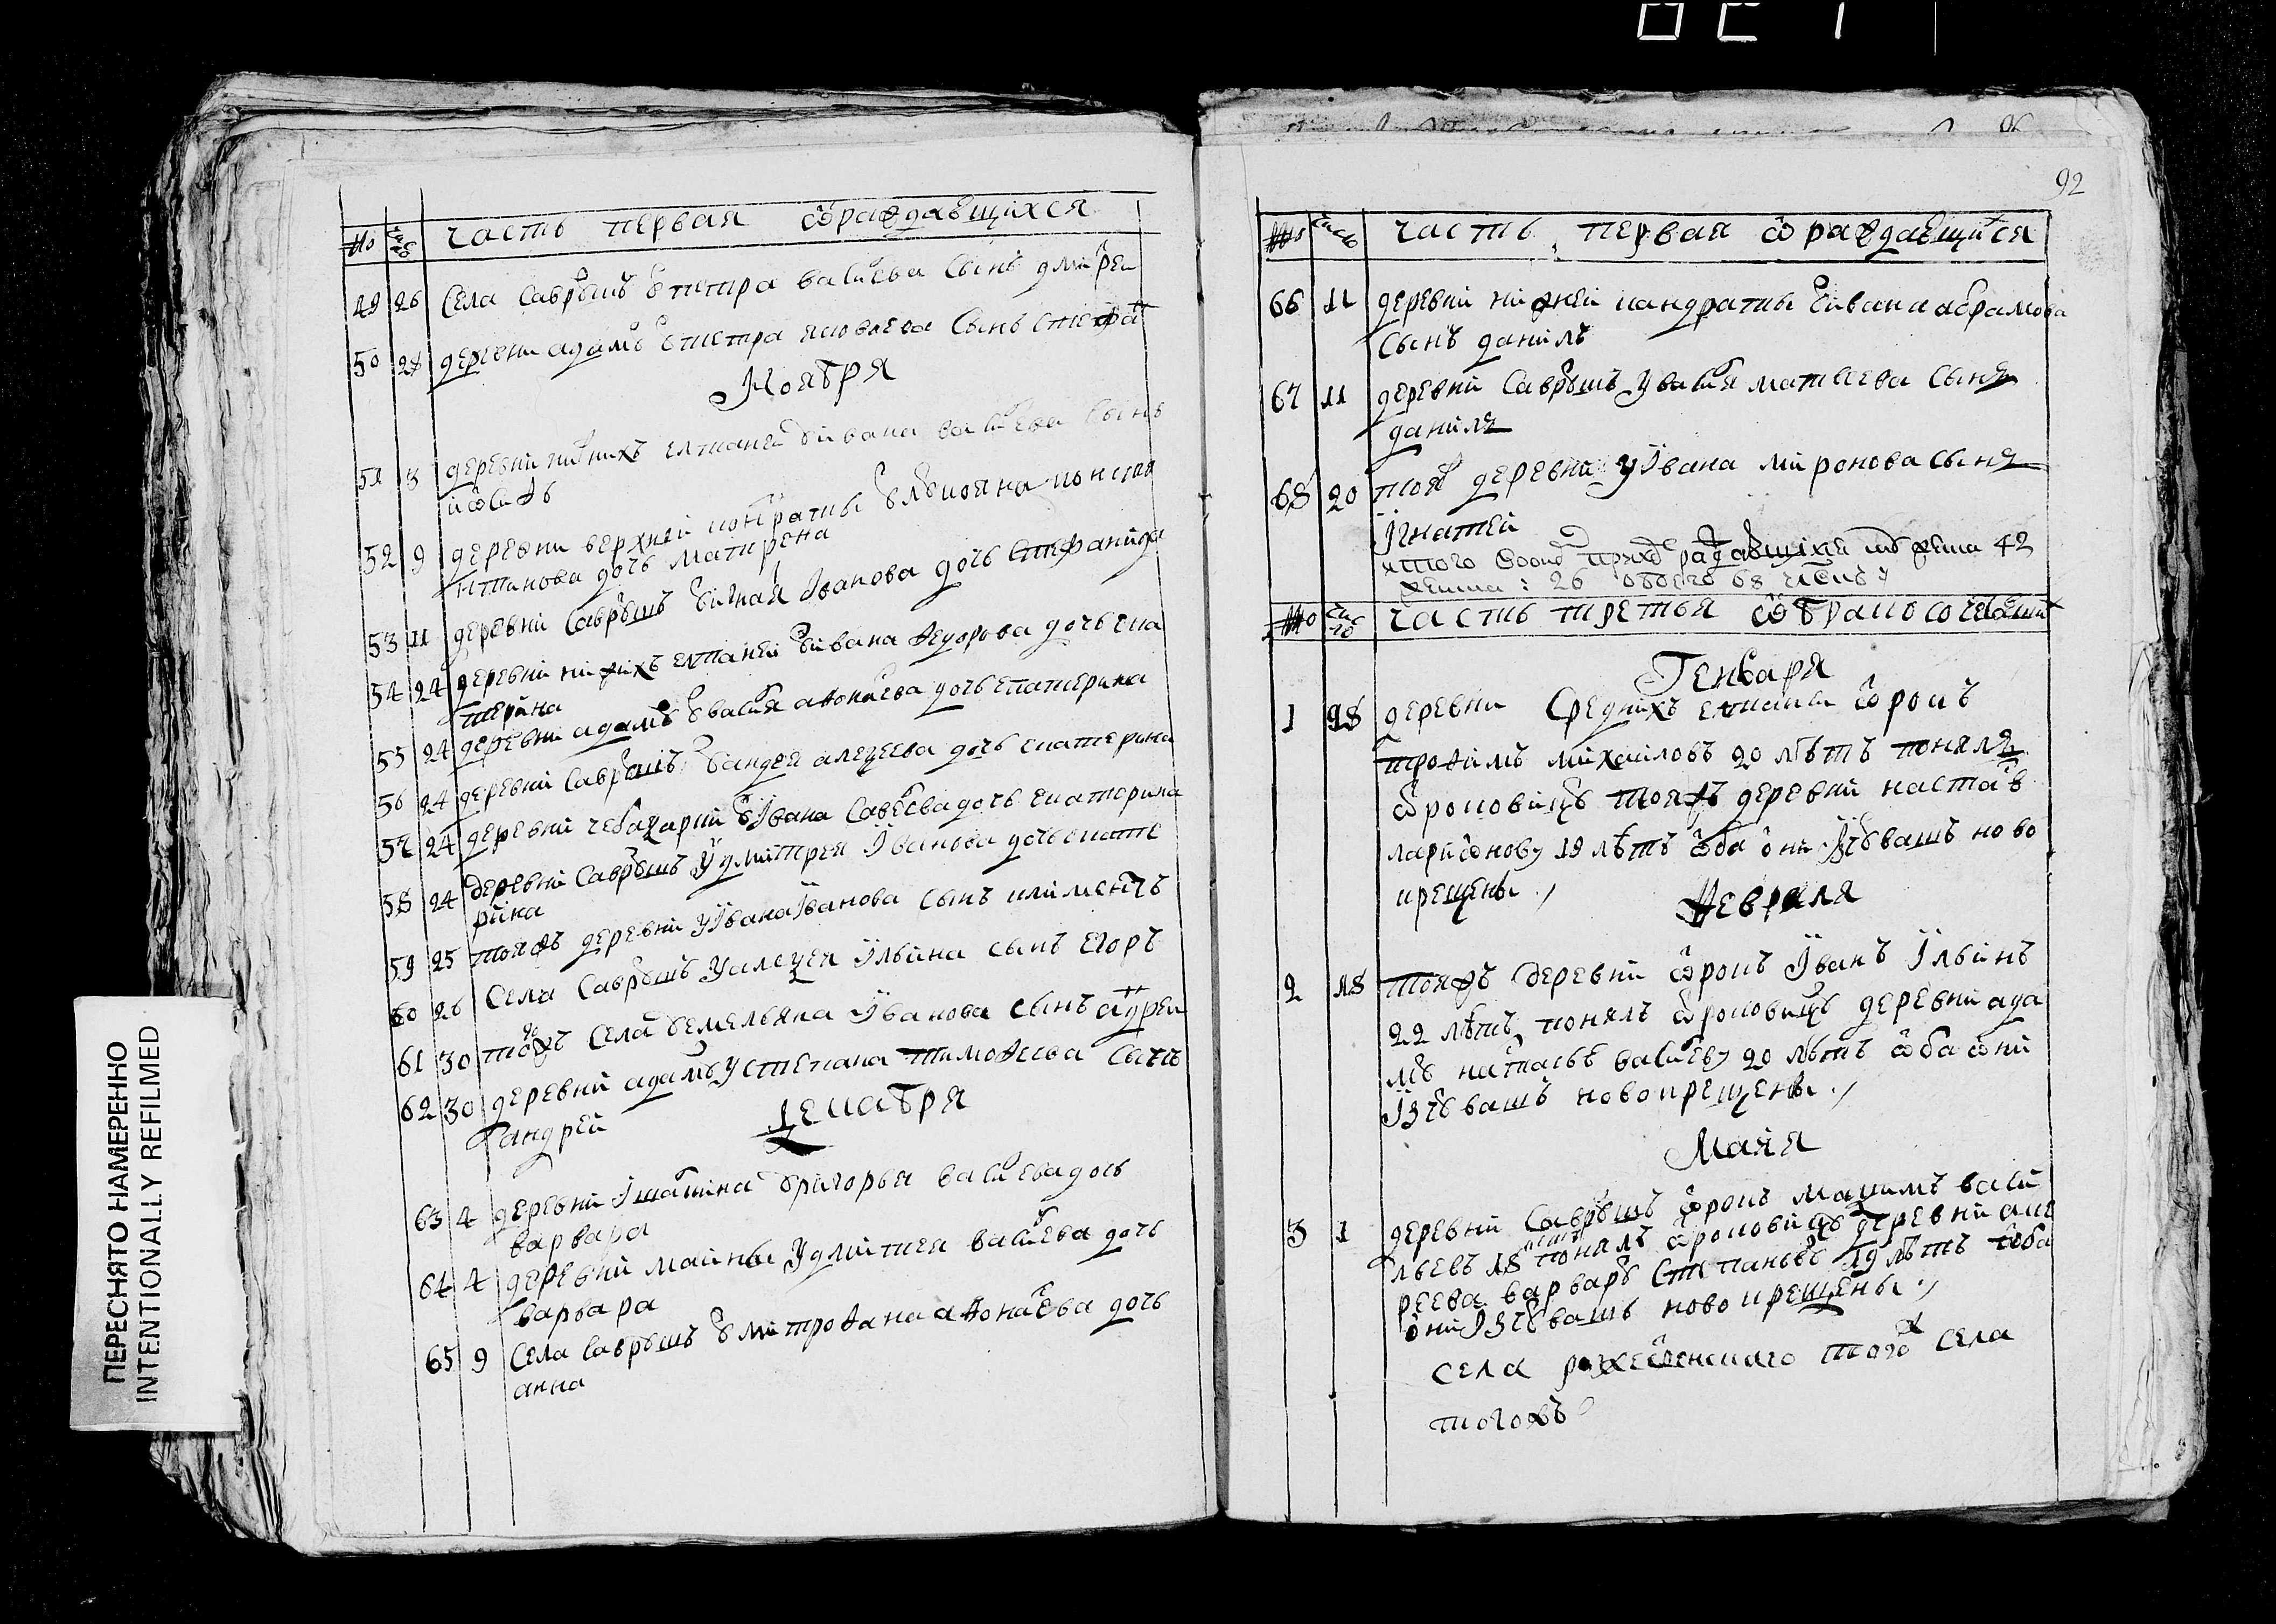 92
№ число часть первая ѡраждаѣщихся
49 26 Села Саврꙋшъ ꙋ петра васильева Сынъ дмитреи
50 28 деревни адамъ ꙋ петра яковлева Сынъ
Ноября
51 3 деревни нижнихъ елтани ꙋ ивана васильева Сынъ
иѡсифъ
52 9 деревни верхней кондраты ꙋ
дочь матрена
53 11 деревни Саврꙋшъ Іванова дочь Стефанида
54 24 деревни нижнихъ елтаней ꙋ ивана Ѳедорова дочь ека
терина
55 24 деревни адамъ ꙋ василя аѳонасева дочь екатерина
56 24 деревни Саврꙋшъ ꙋ андрея алеѯеева дочь екатерина
57 24 деревни чебаѯарки ꙋ Івана Савельева дочь екатерина
58 24 деревни Саврꙋшъ У дмитрея Іванова дочь екате
рина
59 25 тояжъ деревни У Івана Іванова сынъ климентъ
60 26 Села Саврꙋшъ У алеѯея Ільина сынъ Егоръ
61 30 тогожъ Села ꙋ емельяна Іванова сынъ андреи
62 30 деревни адамъ У степана тимоѳеева Сынъ
андрей
Декабря
63 4 деревни ꙋ григорья васильева дочь
варвара
64 4 деревни майны У дмитрея васильева дочь
варвара
65 9 Села Саврꙋшъ ꙋ митроѳана аѳонасьева дочь
анна
№ число часть первая ѡраждаѣщихся
66 11 деревни нижней кандраты ꙋ ивана абрамова
сынъ данилъ
67 11 деревни Саврꙋшъ У василя матвеева Сынъ
данилъ
68 20 тояжъ деревни У Івана миронова сынъ
Ігнатей
итого раждавшихся 42
26 обоего 68
№ число часть третья ѡбракосочетавшихся
Генваря
1 28 деревни Среднихъ елтани ѡтрокъ
троѳимъ михаиловъ 20 лѣтъ понялъ
ѡтроковицꙋ тояжъ деревни настасью
лариѡнову 19 лѣтъ ѡба ѡни Ізчꙋвашъ ново
крещены
Ѳевраля
2 18 тояжъ деревни ѡтрокъ Іванъ Ільинъ
22 лѣтъ понялъ ѡтроковицꙋ деревни ада
мъ настасью васильеву 20 лѣтъ ѡба ѡни
Ізчꙋвашъ новокрещены
Маия
3 1 деревни Саврꙋшъ ѡтрокъ маѯимъ васи
льевъ 18 лѣтъ понялъ ѡтроковицꙋ деревни анд
реева варварꙋ Степановꙋ 19 лѣтъ ѡба
ѡни Ізчꙋвашъ новокрещены
села рожественскаго того села
тогожъ
ПЕРЕСНЯТО НАМЕРЕННО
INTENTIONALLY REFILMED